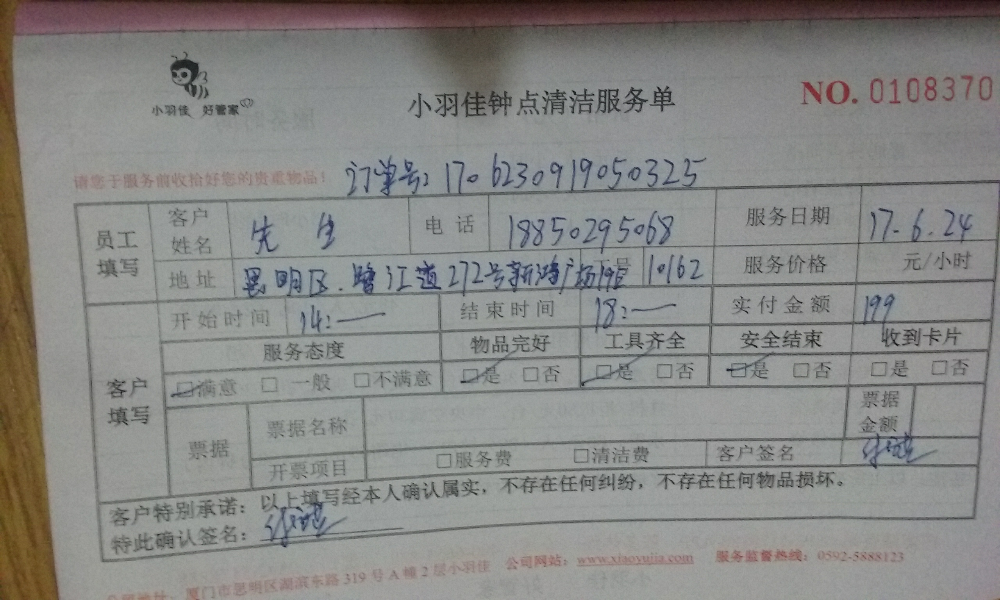 小羽佳 好管家
小羽佳钟点清洁服务单
NO. 0108370
请您于服务前收拾好您的贵重物品!
订单号: 1706230919050325
员工填写 客户姓名 先生 电话 18850295068 服务日期 17.6.24
地址 思明区.鹭江道272号 工号 10162 服务价格 元/小时
客户填写 开始时间 14:— 结束时间 18:— 实付金额 199
服务态度 物品完好 工具齐全 安全结束 收到卡片
☑满意 □一般 □不满意 ☑是 □否 ☑是 □否 ☑是 □否 □是 □否
票据 票据名称 票据金额
开票项目 □服务费 □清洁费 客户签名
客户特别承诺:以上填写经本人确认属实,不存在任何纠纷,不存在任何物品损坏。
特此确认签名:
公司地址:厦门市思明区湖滨东路319号A幢2层小羽佳 公司网站:www.xiaoyujia.com 服务监督热线:0592-5888123